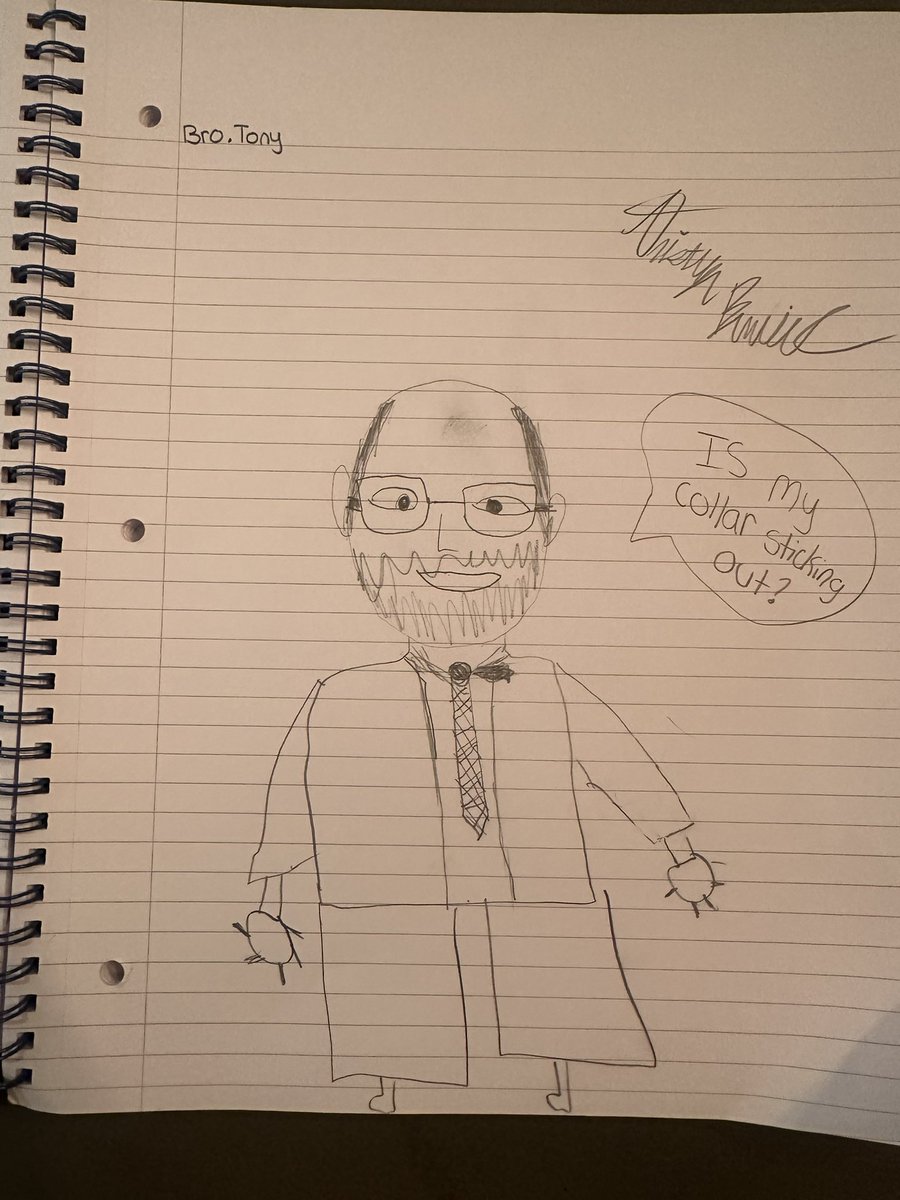 Bro.Tony
Is my
collar sticking
out?